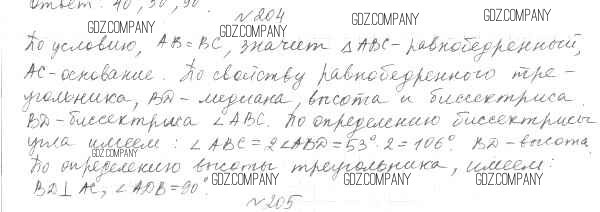 Ответ: 40°, 50°, 90°.
№204
По условию, AB=BC, значит △ABC-равнобедренный,
AC-основание. По свойству равнобедренного тре-
угольника, BD-медиана, высота и биссектриса.
BD-биссектриса ∠ABC. По определению биссектрисы
угла имеем: ∠ABC=2∠ABD=53°·2=106°. BD-высота.
По определению высоты треугольника, имеем:
BD⊥AC, ∠ADB=90°.
№205
GDZ.COMPANY
GDZ.COMPANY
GDZ.COMPANY
GDZ.COMPANY
GDZ.COMPANY
GDZ.COMPANY
GDZ.COMPANY
GDZ.COMPANY
GDZ.COMPANY
GDZ.COMPANY
GDZ.COMPANY
GDZ.COMPANY